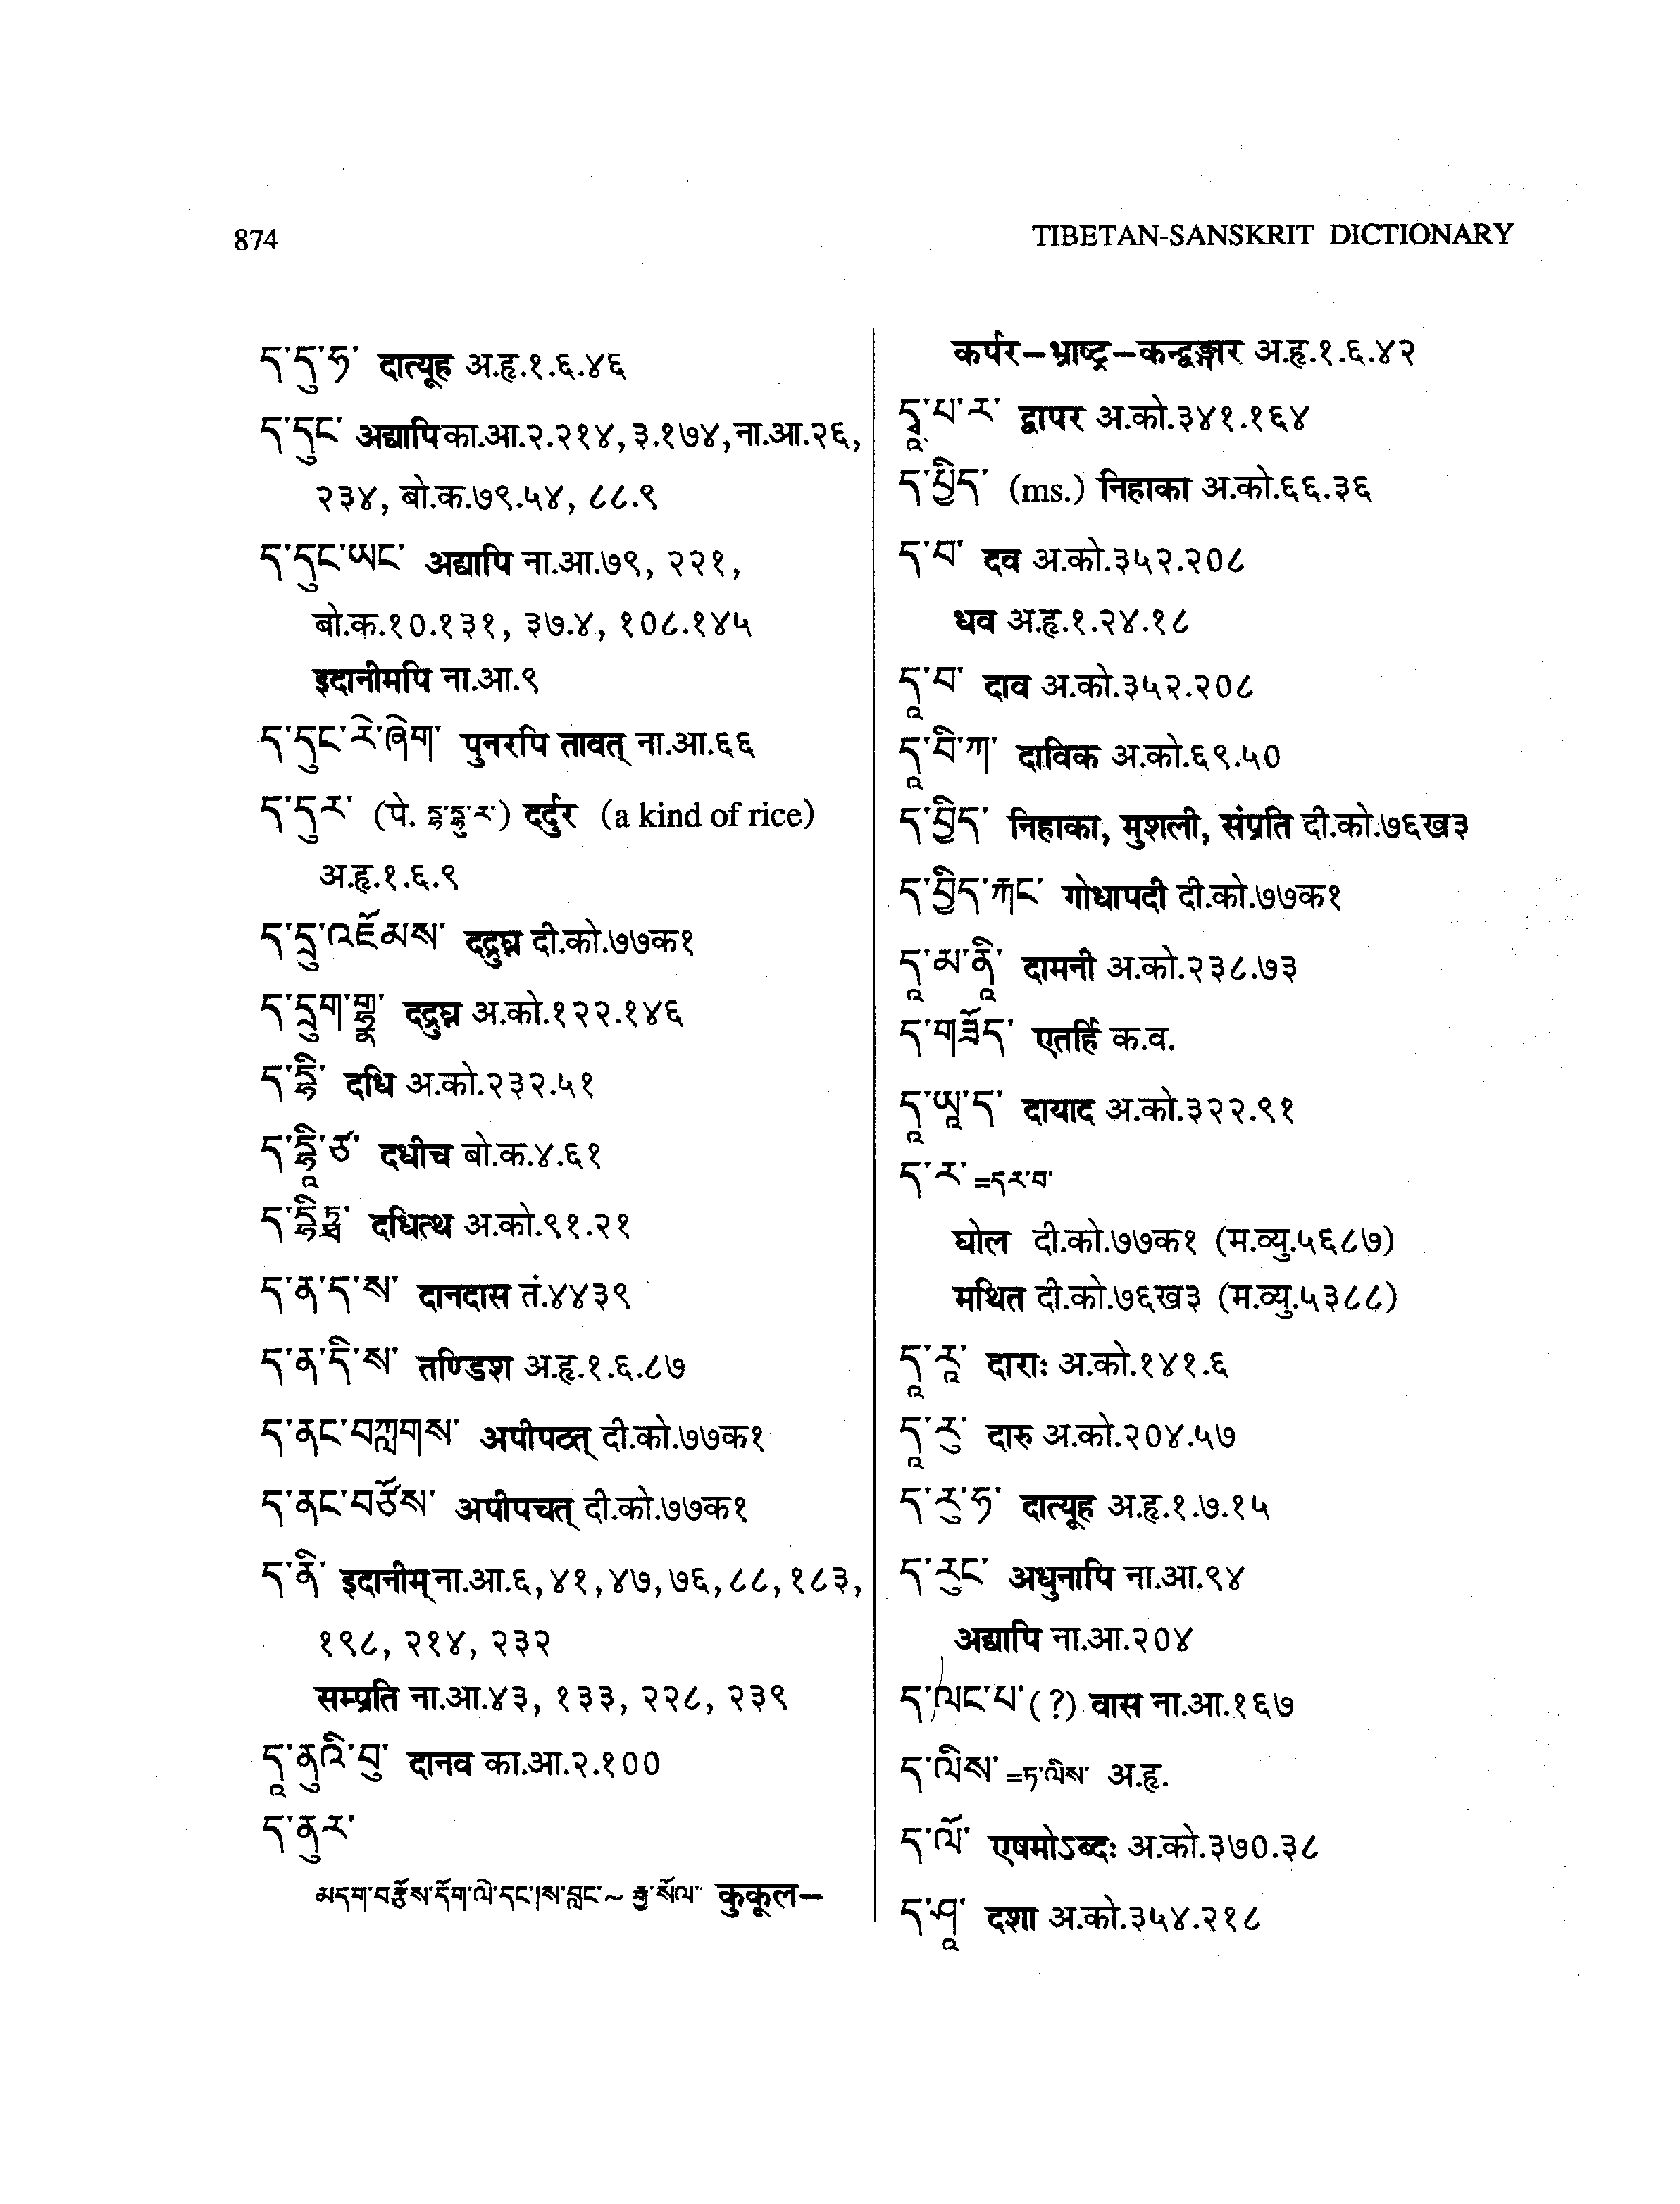 874
TIBETAN-SANSKRIT DICTIONARY
ད་དུ་ཧ་ दात्यूह अ.हृ.१.६.४६
ད་དུང་ अद्यापि का.आ.२.२१४, ३.१७४, ना.आ.२६,
२३४, बो.क.७९.५४, ८८.९
ད་དུང་ཡང་ अद्यापि ना.आ.७९, २२१,
बो.क.१०.१३१, ३७.४, १०८.१४५
इदानीमपि ना.आ.९
ད་དུང་རེ་ཞིག་ पुनरपि तावत् ना.आ.६६
ད་དུར་ (पे. ) दर्दुर (a kind of rice)
अ.हृ.१.६.९
ད་དྲུ་འཇོམས་ दद्रुघ्न दी.को.७७क१
ད་དྲུག་ दद्रुघ्न अ.को.१२२.१४६
ད་དྷི་ दधि अ.को.२३२.५१
ད་དྷཱི་ཙ་ दधीच बो.क.४.६१
ད་དྷི་ཏྠ་ दधित्थ अ.को.९१.२१
ད་ན་ད་ས་ दानदास तं.४४३९
ད་ན་དི་ས་ तण्डिश अ.हृ.१.६.८७
ད་ནང་བཀླགས་ अपीपठत् दी.को.७७क१
ད་ནང་བཙོས་ अपीपचत् दी.को.७७क१
ད་ནི་ इदानीम् ना.आ.६, ४१, ४७, ७६, ८८, १८३,
१९८, २१४, २३२
सम्प्रति ना.आ.४३, १३३, २२८, २३९
དཱ་ནུའི་བུ་ दानव का.आ.२.१००
ད་ནུར་
~ कुकूल–
कर्पर–भ्राष्ट्र–कन्द्वङ्गार अ.हृ.१.६.४२
དྭཱ་པ་ར་ द्वापर अ.को.३४१.१६४
ད་ཕྱིད་ (ms.) निहाका अ.को.६६.३६
ད་བ་ दव अ.को.३५२.२०८
धव अ.हृ.१.२४.१८
དཱ་བ་ दाव अ.को.३५२.२०८
དཱ་བི་ཀ་ दाविक अ.को.६९.५०
ད་བྱིད་ निहाका, मुशली, संप्रति दी.को.७६ख३
ད་བྱིད་རྐང་ गोधापदी दी.को.७७क१
དཱ་མ་ནཱི་ दामनी अ.को.२३८.७३
ད་གཟོད་ एतर्हि क.व.
དཱ་ཡཱ་ད་ दायाद अ.को.३२२.९१
ད་ར་ =དར་བ་
घोल दी.को.७७क१ (म.व्यु.५६८७)
मथित दी.को.७६ख३ (म.व्यु.५३८८)
དཱ་རཱ་ दाराः अ.को.१४१.६
དཱ་རུ་ दारु अ.को.२०४.५७
ད་རུ་ཧ་ दात्यूह अ.हृ.१.७.१५
ད་རུང་ अधुनापि ना.आ.९४
अद्यापि ना.आ.२०४
ད་ལང་པ་ (?) वास ना.आ.१६७
ད་ལིས་ =ཏ་ལིས་ अ.हृ.
ད་ལོ་ एषमोऽब्दः अ.को.३७०.३८
ད་ཤཱ་ दशा अ.को.३५४.२१८